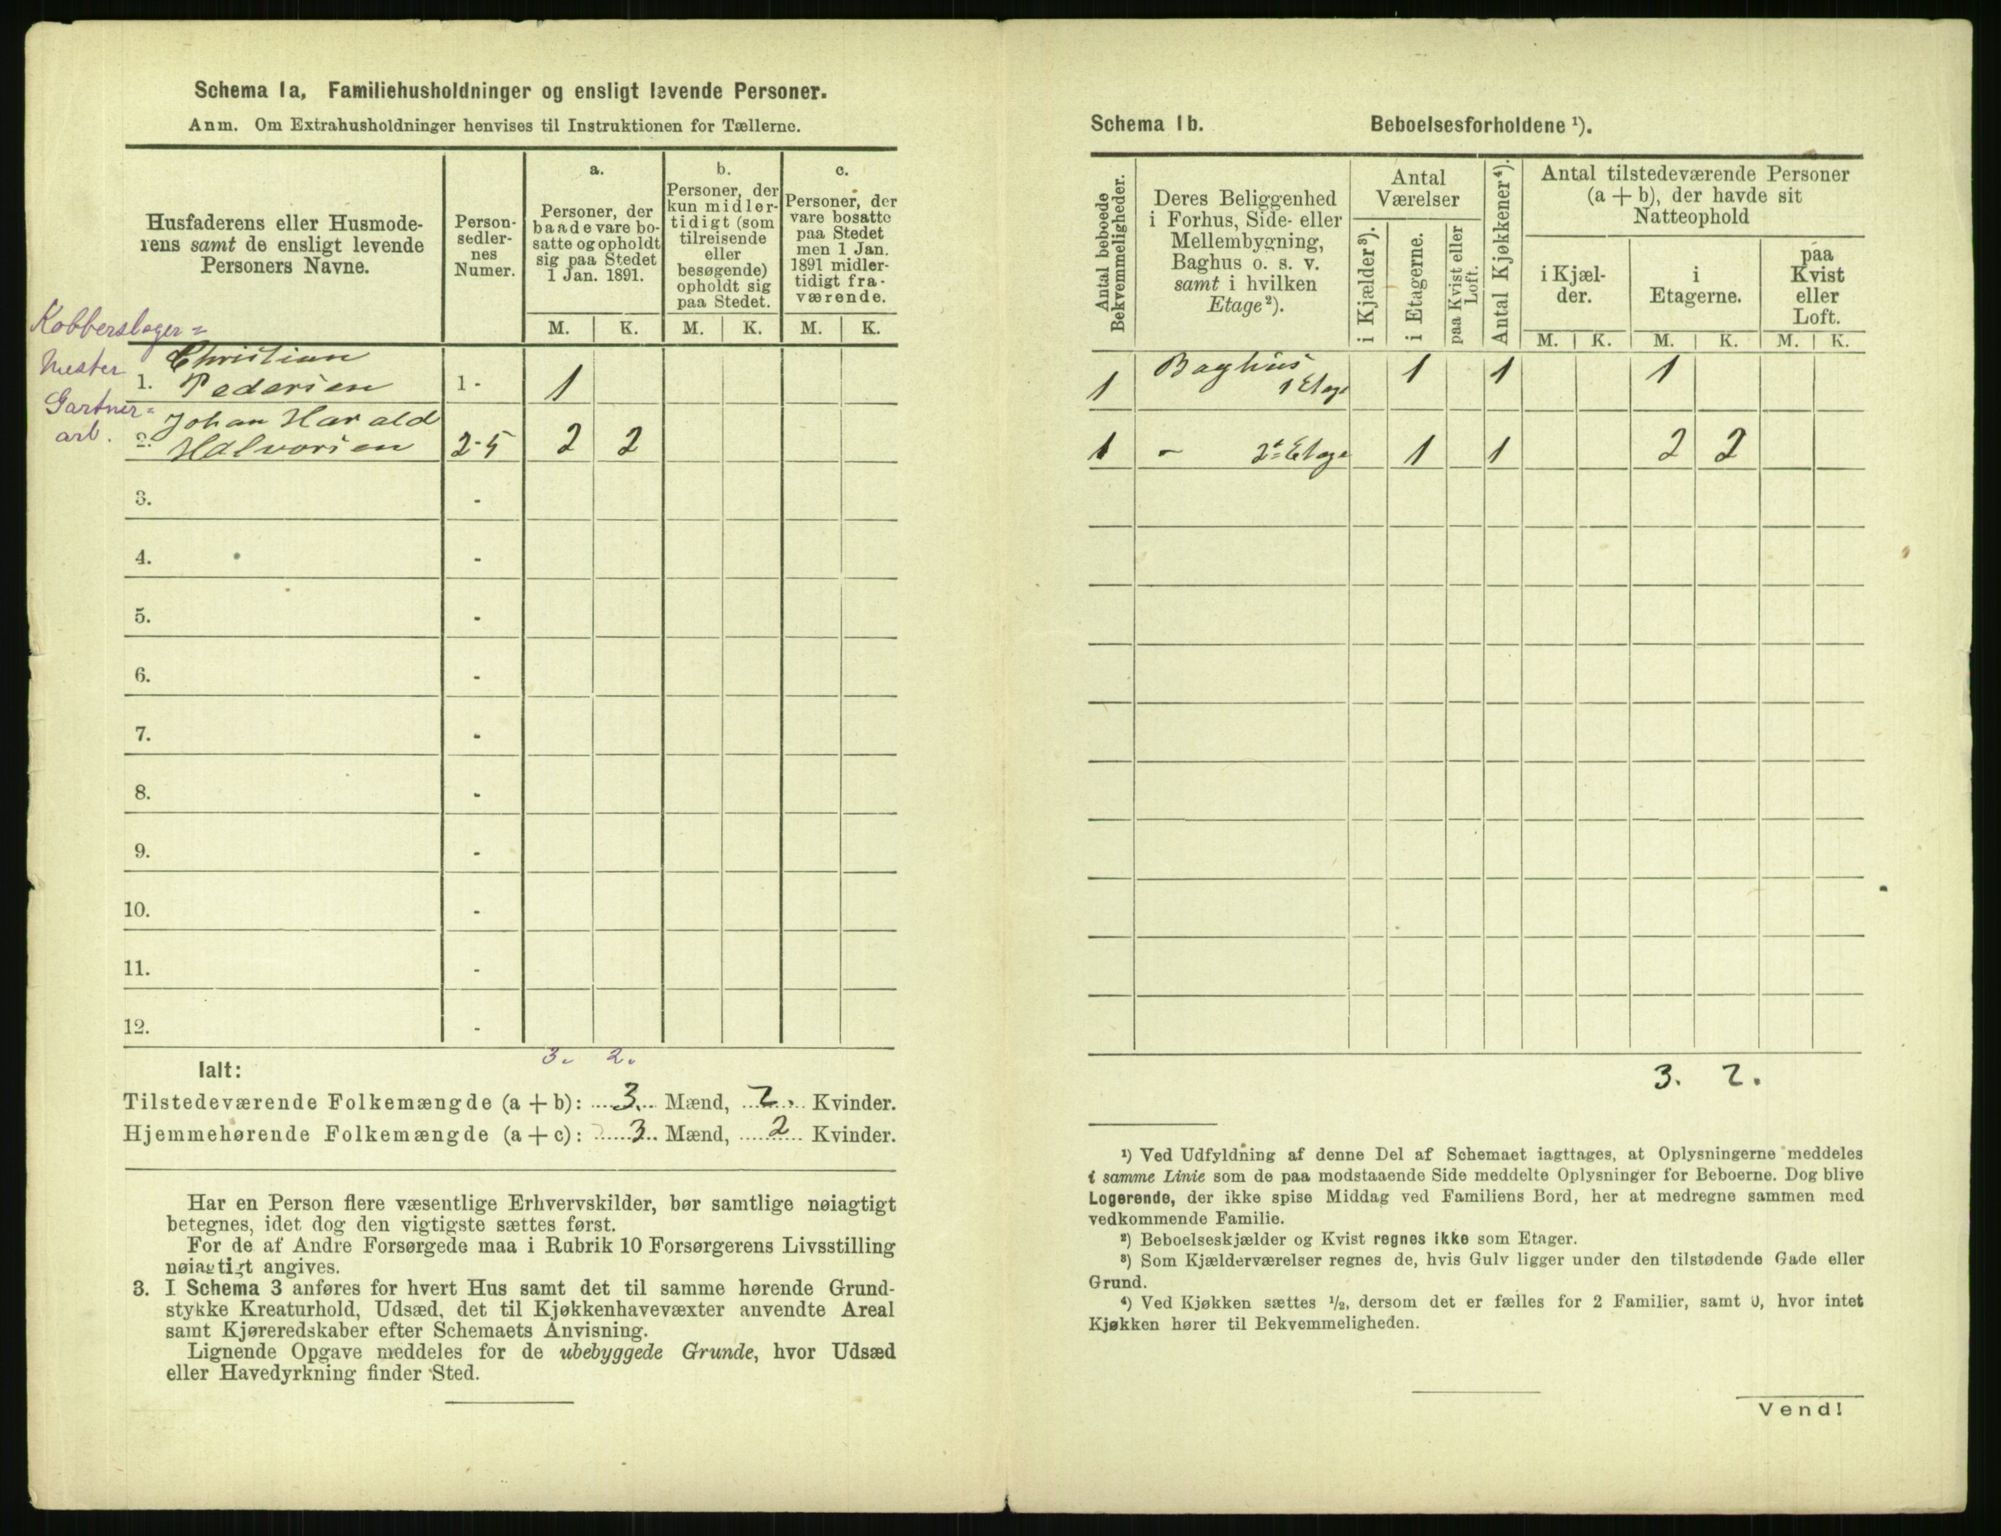 Schema 1a, Familiehusholdninger og ensligt levende Personer.
Anm. Om Extrahusholdninger henvises til Instruktionen for Tællerne.
Husfaderens eller Husmode-
rens samt de ensligt levende
Personers Navne.
Person-
sedler-
nes
Numer.
a.
Personer, der
baade vare bo-
satte og opholdt
sig paa Stedet
1 Jan. 1891.
b.
Personer, der
kun midler-
tidigt (som
tilreisende
eller
besøgende)
opholdt sig
paa Stedet.
c.
Personer, der
vare bosatte
paa Stedet
men 1 Jan.
1891 midler-
tidigt fra-
værende.
M. K. M. K. M. K.
Kobberslager=
Mester
Christian
1. Pedersen 1- 1
Gartner=
arb.
Johan Harald
2. Halvorsen 2-5 2 2
3. -
4. -
5. -
6. -
7. -
8. -
9. -
10. -
11. -
12. -
3. 2.
Ialt:
Tilstedeværende Folkemængde (a + b): 3. Mænd, 2. Kvinder.
Hjemmehørende Folkemængde (a + c): 3 Mænd, 2 Kvinder.
Har en Person flere væsentlige Erhvervskilder, bør samtlige nøiagtigt
betegnes, idet dog den vigtigste sættes først.
For de af Andre Forsørgede maa i Rubrik 10 Forsørgerens Livsstilling
nøiagtigt angives.
3. I Schema 3 anføres for hvert Hus samt det til samme hørende Grund-
stykke Kreaturhold, Udsæd, det til Kjøkkenhavevæxter anvendte Areal
samt Kjøreredskaber efter Schemaets Anvisning.
Lignende Opgave meddeles for de ubebyggede Grunde, hvor Udsæd
eller Havedyrkning finder Sted.
Schema 1b. Beboelsesforholdene ¹).
Antal beboede
Bekvemmeligheder.
Deres Beliggenhed
i Forhus, Side- eller
Mellembygning,
Baghus o. s. v.
samt i hvilken
Etage²).
Antal
Værelser
i Kjælder³).
i Etagerne.
paa Kvist eller
Loft.
Antal Kjøkkener⁴).
Antal tilstedeværende Personer
(a + b), der havde sit
Natteophold
i Kjæl-
der.
i
Etagerne.
paa
Kvist
eller
Loft.
M. K. M. K. M. K.
1 Baghus 1 1 1
1 Etage
1 - 2den Etage 1 1 2 2
3. 2.
¹) Ved Udfyldning af denne Del af Schemaet iagttages, at Oplysningerne meddeles
i samme Linie som de paa modstaaende Side meddelte Oplysninger for Beboerne. Dog blive
Logerende, der ikke spise Middag ved Familiens Bord, her at medregne sammen med
vedkommende Familie.
²) Beboelseskjælder og Kvist regnes ikke som Etager.
³) Som Kjælderværelser regnes de, hvis Gulv ligger under den tilstødende Gade eller
Grund.
⁴) Ved Kjøkken sættes ½, dersom det er fælles for 2 Familier, samt 0, hvor intet
Kjøkken hører til Bekvemmeligheden.
Vend!